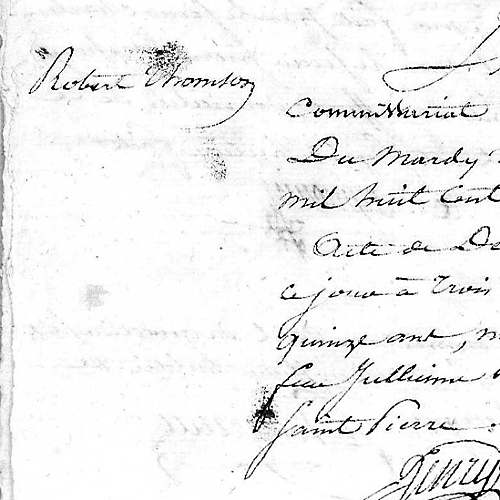 Robert Thomson
Commissariat
Du Mardy
mil huit Cent
Acte de De
ce jour à trois
quinze ans, m
feue Jullienne
Saint Pierre
Henry